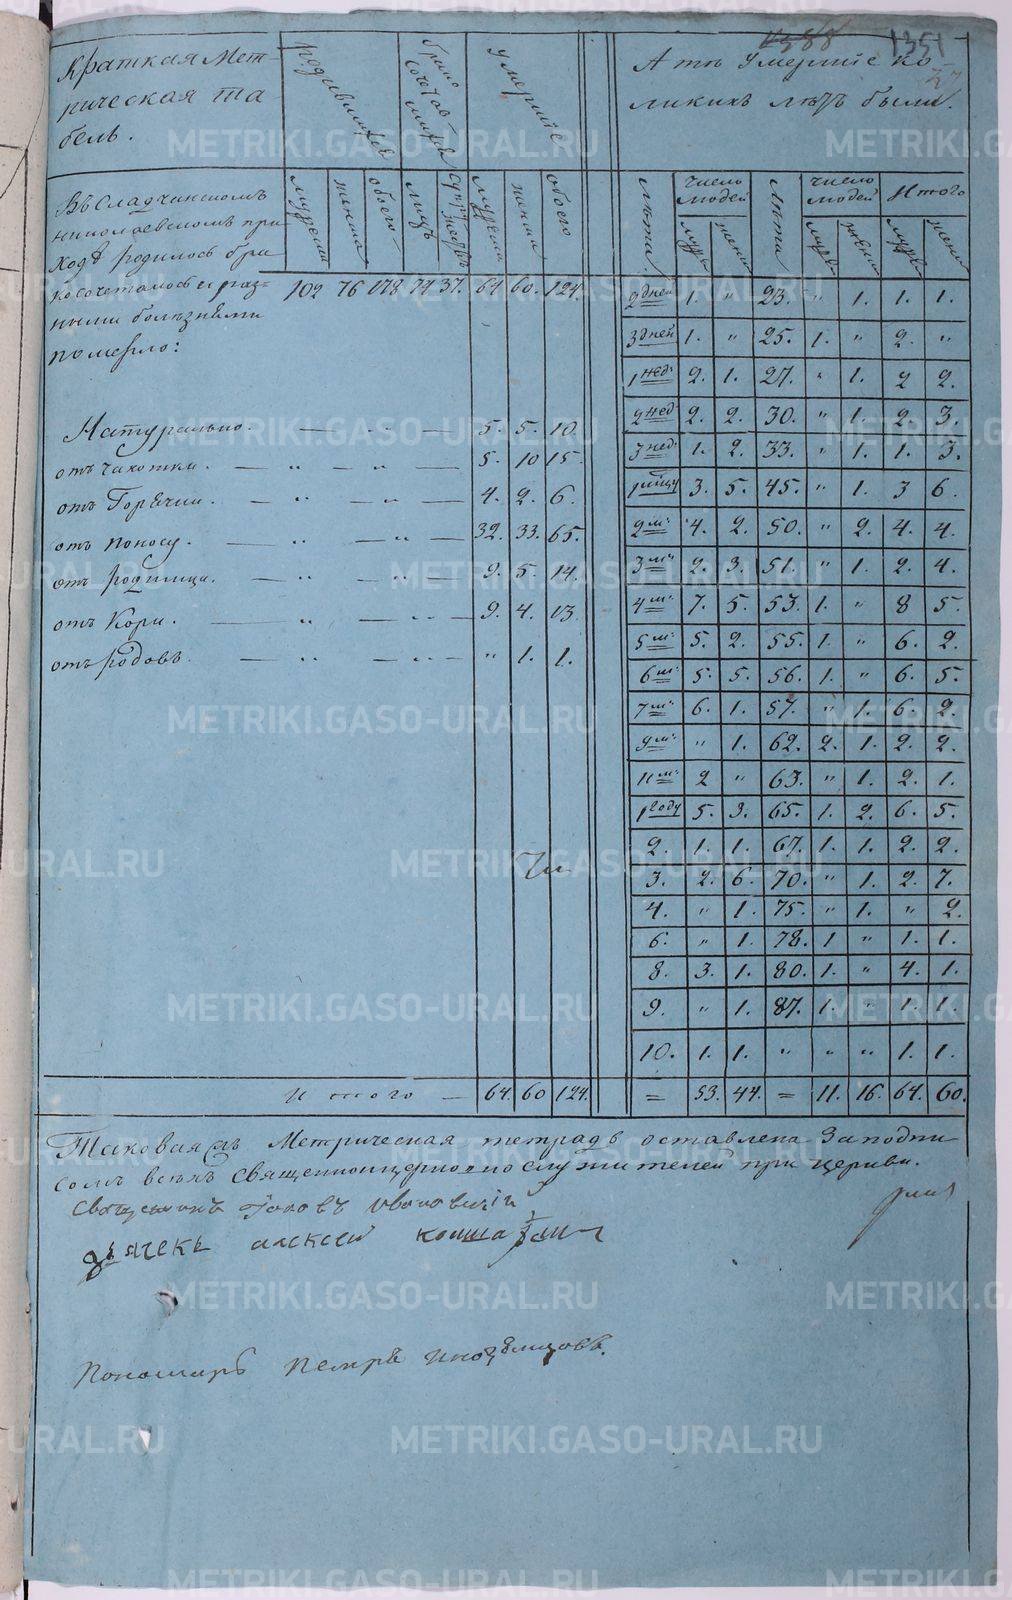 1388 1351
37
Краткая Мет-
рическая та-
бель.
родившихся
брако
сочетав-
шихся
умершие
А тѣ умершіе ко-
ликихъ лѣтъ были.
мужеска женска обоего лицъ супружествъ мужеска женска обоего
лѣта число людей лѣта число людей Итого
мужс женс мужс женс мужс женс
Въ Сладчинскомъ
николаевскомъ при-
ходѣ родилось бра-
косочеталось и раз-
ными болѣзнями
померло:
102 76 178 74 37. 64 60. 124
Натурально. — " — 5. 5. 10
отъ чахотки. — " — " — 5. 10 15.
отъ Горячки. — " — " — 4. 2. 6.
отъ поносу. — " — " — 32. 33. 65.
отъ родимца. — " — " — 9. 5. 14.
отъ Кори. — " — " — 9. 4. 13
отъ родовъ. — " — " — " 1. 1.
2 дней 1. " 23. " 1. 1. 1.
3 дней 1. " 25. 1. " 2. "
1 нед. 2. 1. 27. " 1. 2 2.
2 нед 2. 2. 30. " 1. 2. 3.
3 нед. 1. 2. 33. " 1. 1. 3.
1 мцу 3. 5. 45. " 1. 3 6.
2 м: 4. 2. 50. " 2. 4. 4.
3 м: 2. 3. 51. " 1. 2. 4.
4 м: 7. 5. 53. 1. " 8 5.
5 м: 5. 2. 55. 1. " 6. 2.
6 м: 5. 5. 56. 1. " 6. 5.
7 м: 6. 1. 57. " 1. 6. 2.
9 м: " 1. 62. 2. 1. 2. 2.
11 м: 2 " 63. " 1. 2. 1.
1 году 5. 3. 65. 1. 2. 6. 5.
2. 1. 1. 67. 1. 1. 2. 2.
3. 2. 6. 70. " 1. 2. 7.
4. " 1. 75. " 1. " 2.
6. " 1. 78. 1 " 1. 1.
8. 3. 1. 80. 1. " 4. 1.
9. " 1. 87. 1. " 1. 1.
10. 1. 1. " " " 1. 1.
Итого — 64. 60 124. = 53. 44. = 11. 16. 64. 60.
Таковая съ Метрическая тетрадь оставлена за подпи-
сомъ всѣхъ священноицерковнослужителей при церкви.
Священникъ Іаковъ
дьячекъ алексей
Пономарь Петръ Иноземцовъ.
METRIKI.GASO-URAL.RU